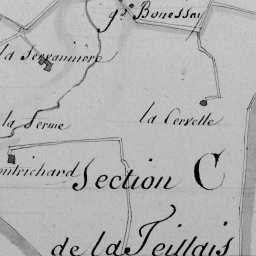 gd Bonessay
la Servannière
la Ferme
la Cerselle
ontrichard
Section C
de la Teillais